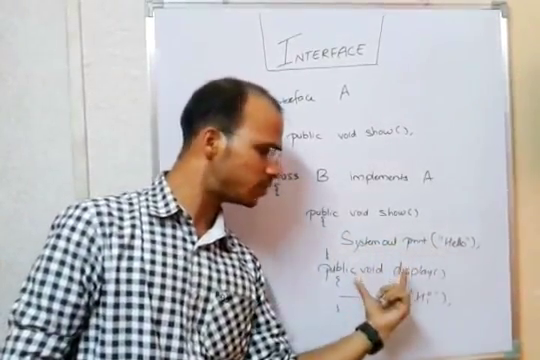 INTERFACE
terface A
public void show();
ass B implements A
{
public void show()
{
System.out.print("Hello");
}
public void display()
{
("Hi");
}